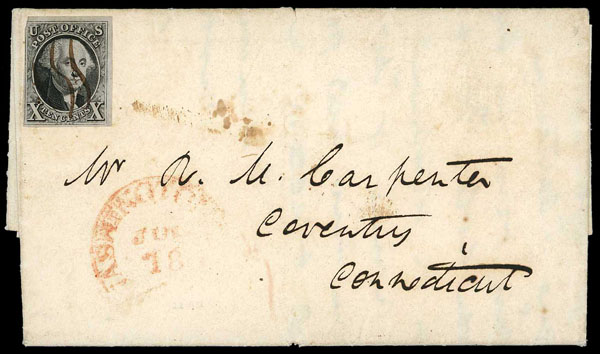 U S
POST OFFICE
X TEN CENTS X
Mr R. M. Carpenter
Coventry
Connecticut
18